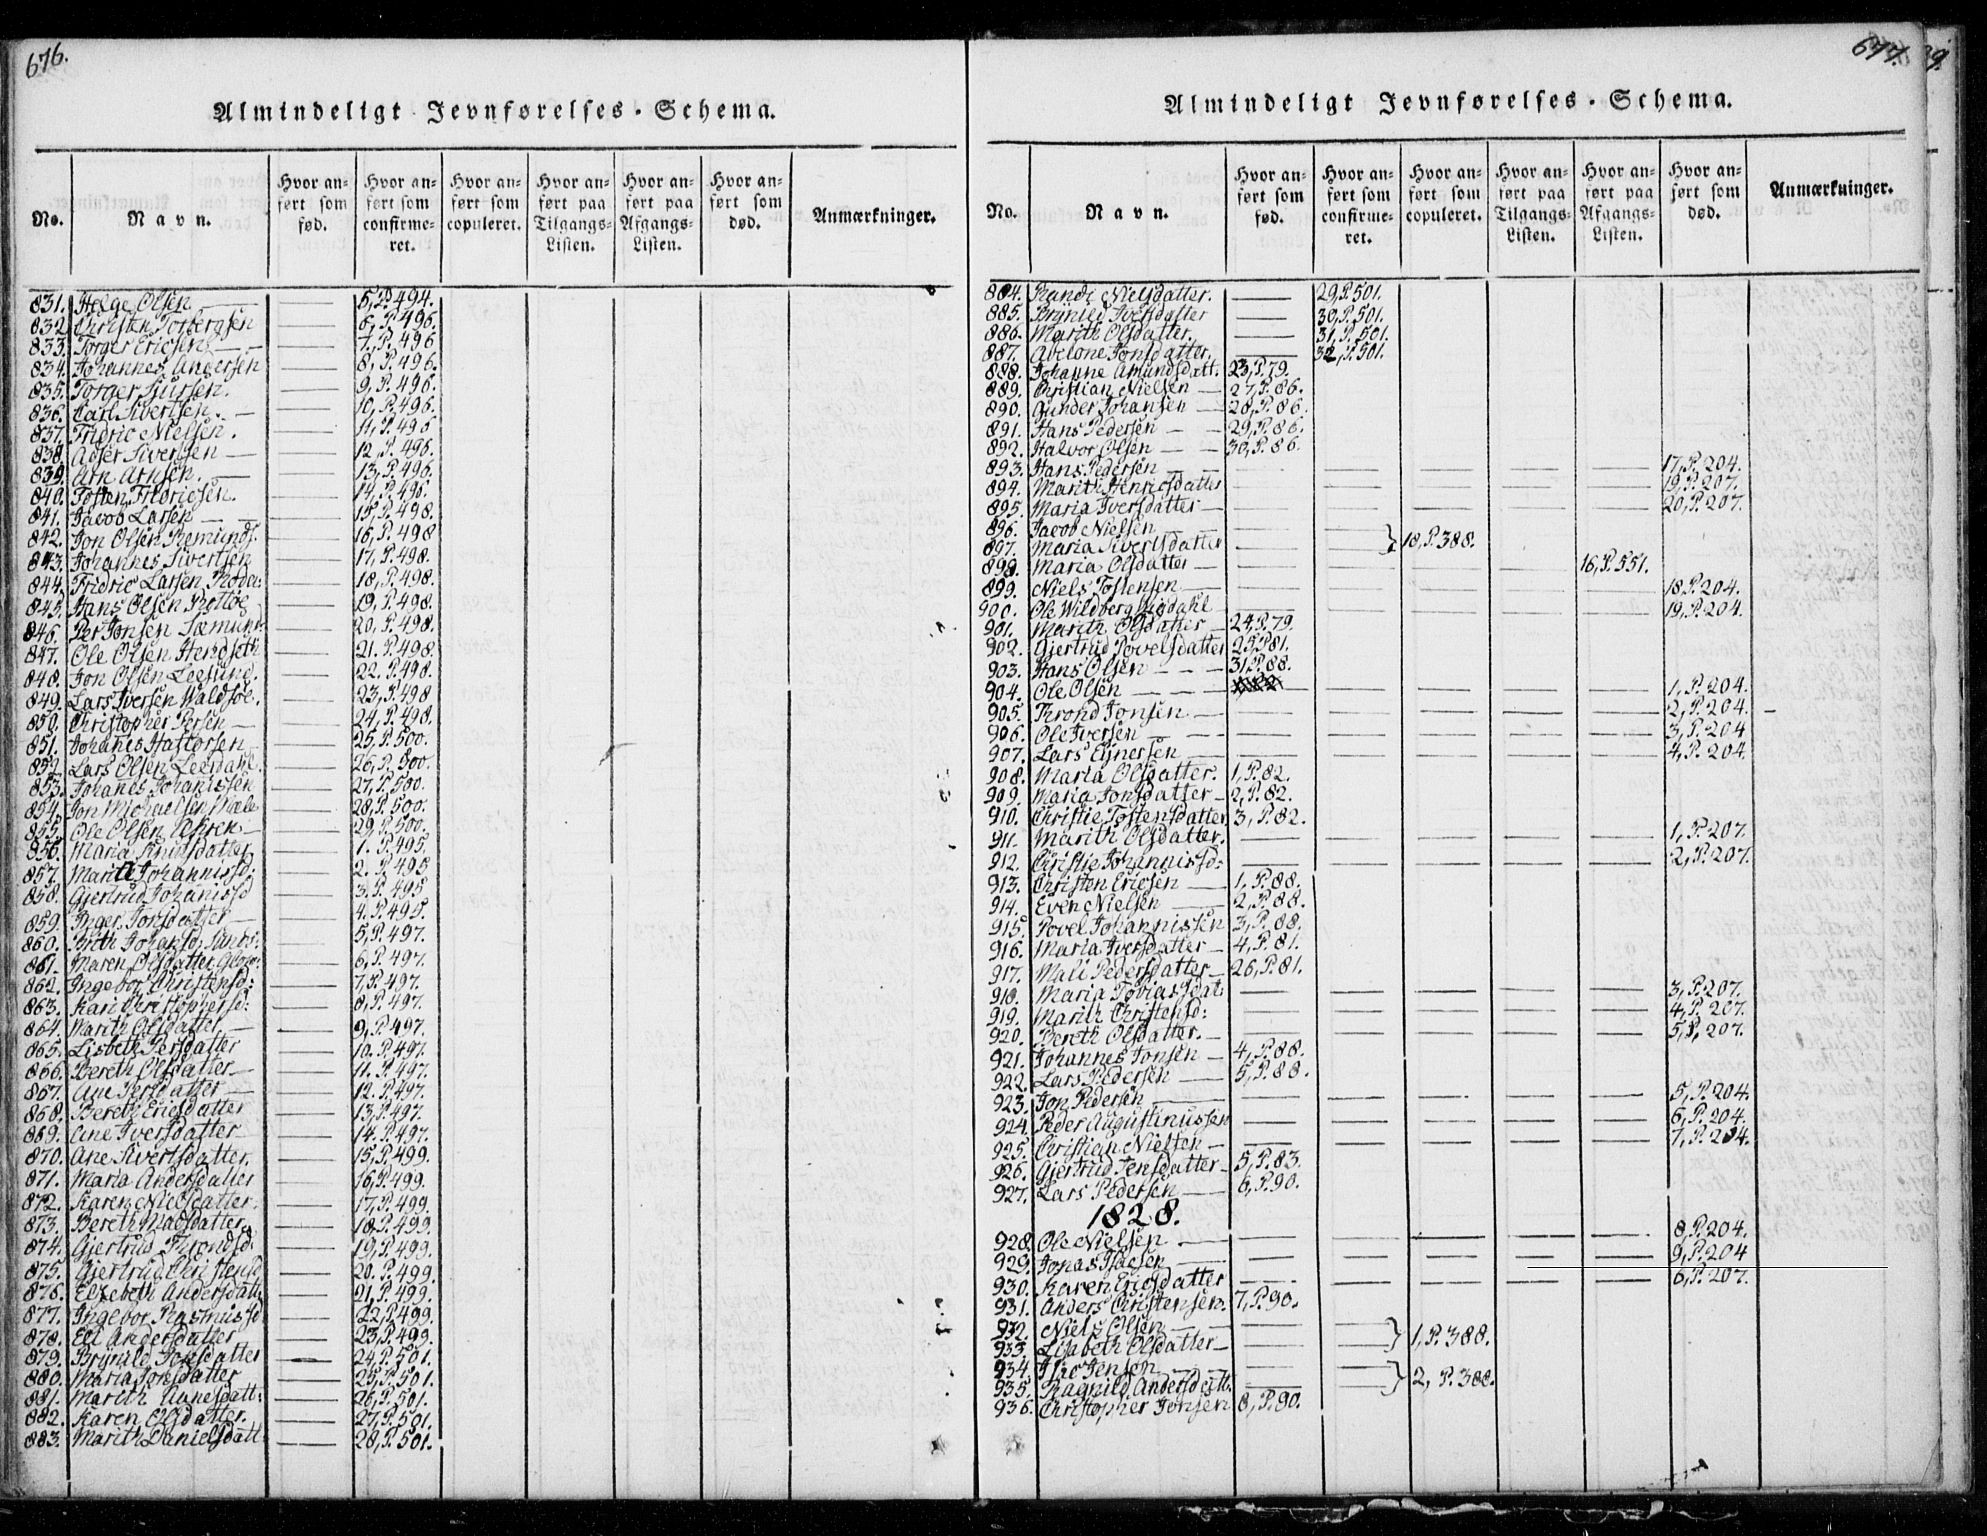 676.
Almindeligt Jevnførelses-Schema.
No. Navn. Hvor anført som fød. Hvor anført som confirmeret. Hvor anført som copuleret. Hvor anført paa Tilgangs-Listen. Hvor anført paa Afgangs-Listen. Hvor anført som død. Anmærkninger.
831. Helge Olsen 5, P. 494.
832. Christen Torbergsen 6, P. 496.
833. Torger Ericsen 7, P. 496
834. Johannes Andersen 8, P. 496.
835. Torger Siursen. 9, P. 496.
836. Carl Sivertsen. 10, P. 496.
837. Fridric Nielsen. 11, P. 496
838. Adser Sivertsen 12, P. 496.
839. Arn Arnsen. 13, P. 496.
840. Tosten Fridricsen. 14, P. 496.
841. Jacob Larsen 15, P. 498.
842. Jon Olsen Remunds. 16, P. 498
843. Johannes Sivertsen 17, P. 498.
844. Fridric Larsen 18, P. 498.
845. Hans Olsen 19, P. 498.
846. Per Jonsen 20, P. 498.
847. Ole Olsen Hendseth 21. P. 498
848. Jon Olsen 22. P. 498.
849. Lars Iversen Waldsøe. 23, P. 498
850. Christopher Persen 24, P. 498.
851. Johanes Haftorsen 25, P. 500.
852. Lars Olsen Leerdahl. 26, P. 500.
853. Johanes Johanissen 27, P. 500.
854. Jon Michaelsen 28, P. 500.
855. Ole Olsen 29, P. 500.
856. Maria Knutsdatter. 1. P. 495.
857. Marith Johannisd. 2. P. 495
858. Gjertrud Johanissd 3. P. 495
859. Inger Jonsdatter 4. P. 495.
860. Brith Johansd: 5, P. 497.
861. Maren Olsdatter 6, P. 497.
862. Ingebor Christensd: 7, P. 497.
863. Kari Christophersd: 8, P. 497.
864. Marith Olsdatter 9, P. 497.
865. Lisbeth Persdatter 10. P. 497.
866. Bereth Olsdatter 11. P. 497.
867. Ane Persdatter 12. P. 497.
868. Bereth Ericsdatter 13, P. 497.
869. Ane Iversdatter 14. P. 497.
870. Ane Sivertsdatter. 15. P. 499.
871. Maria Andersdatter 16. P. 499.
872. Karen Nielsdatter. 17, P. 499.
873. Bereth Madsdatter. 18. P. 499.
874. Gjertrud Throndsd: 19, P. 499.
875. Gjertrud Christensd 20. P. 499.
876. Elzebeth Andersdatt. 21, P. 499.
877. Ingebor Rasmussd 22, P. 499.
878. Ell Andersdatter 23, P. 499.
879. Brynild Jonsdatter 24, P. 501.
880. Maria Jonsdatter 25, P. 501.
881. Marith Aanesdatt: 26, P. 501.
882. Karen Olsdatter. 27, P. 501.
883. Marith Danielsdatt. 28, P. 501.
677.
Almindeligt Jevnførelses-Schema.
No. Navn. Hvor anført som fød. Hvor anført som confirmeret. Hvor anført som copuleret. Hvor anført paa Tilgangs-Listen. Hvor anført paa Afgangs-Listen. Hvor anført som død. Anmærkninger.
884. Randi Nielsdatter. 29, P. 501.
885. Brynild Iversdatter 30, P. 501.
886. Marith Olsdatter. 31, P. 501.
887. Abelone Jonsdatter. 32, P. 501.
888. Johanne Amundsdatt. 23, P. 79.
889. Christian Nielsen 27, P. 86.
890. Gunder Johansen 28, P. 86.
891. Hans Pedersen 29, P. 86.
892. Halvor Olsen 30, P. 86.
893. Hans Pedersen 17, P. 204.
894. Marith Henricsdatter 19, P. 207.
895. Maria Iversdatter 20, P. 207.
896. Jacob Nielsen
897. Maria Sivertsdatter } 18, P. 388.
898. Maria Olsdatter 16, P. 551.
899. Niels Tostensen 18, P. 204.
900. Ole Wildberg 19, P. 204.
901. Marith Olsdatter 24, P. 79.
902. Gjertrud Povelsdatter 25, P. 81.
903. Hans Olsen 31, P. 88.
904. Ole Olsen 1, P. 204.
905. Thrond Jonsen 2, P. 204.
906. Ole Iversen 3, P. 204
907. Lars Ejnersen 4, P. 204.
908. Maria Olsdatter. 1, P. 82.
909. Maria Jonsdatter 2, P. 82.
910. Christie Tostensdatter 3, P. 82.
911. Marith Olsdatter. 1, P. 207.
912. Christie Johannissd: 2, P. 207.
913. Christen Ericsen 1, P. 88.
914. Even Nielsen 2, P. 88.
915. Povel Johannissen 3, P. 88.
916. Maria Iversdatter 4, P. 81.
917. Mali Pedersdatter 26, P. 81.
918. Maria Tobiasdat: 3, P. 207.
919. Marith Christensd: 4, P. 207.
920. Bereth Olsdatter. 5, P. 207.
921. Johannes Jonsen 4, P. 88.
922. Lars Pedersen 5, P. 88.
923. Jon Pedersen 5, P. 204.
924. Peder Augustinussen 6, P. 204.
925. Christian Nielsen 7, P. 204.
926. Gjertrud Jensdatter 5, P. 83.
927. Lars Pedersen 6, P. 90.
1828.
928. Ole Nielsen 8, P. 204.
929. Jonas Isacsen 9, P. 204
930. Karen Ericsdatter 6, P. 207.
931. Anders Christensen. 7, P. 90.
932. Niels Olsen
933. Lisabeth Olsdatter } 1, P. 388.
934. Jensen
935. Ragnild Andersdatt. } 2, P. 388.
936. Christopher Jonsen 8, P. 90.